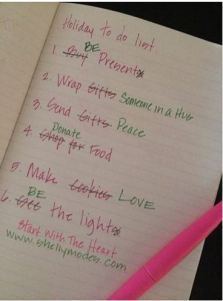 Holiday to do list
1. Buy BE Presents
2. Wrap Gifts Someone in a Hug
3. Send Gifts Peace
4. Shop for Donate Food
5. Make Cookies LOVE
6. See BE the lights
Start With The Heart
www.shellymodes.com